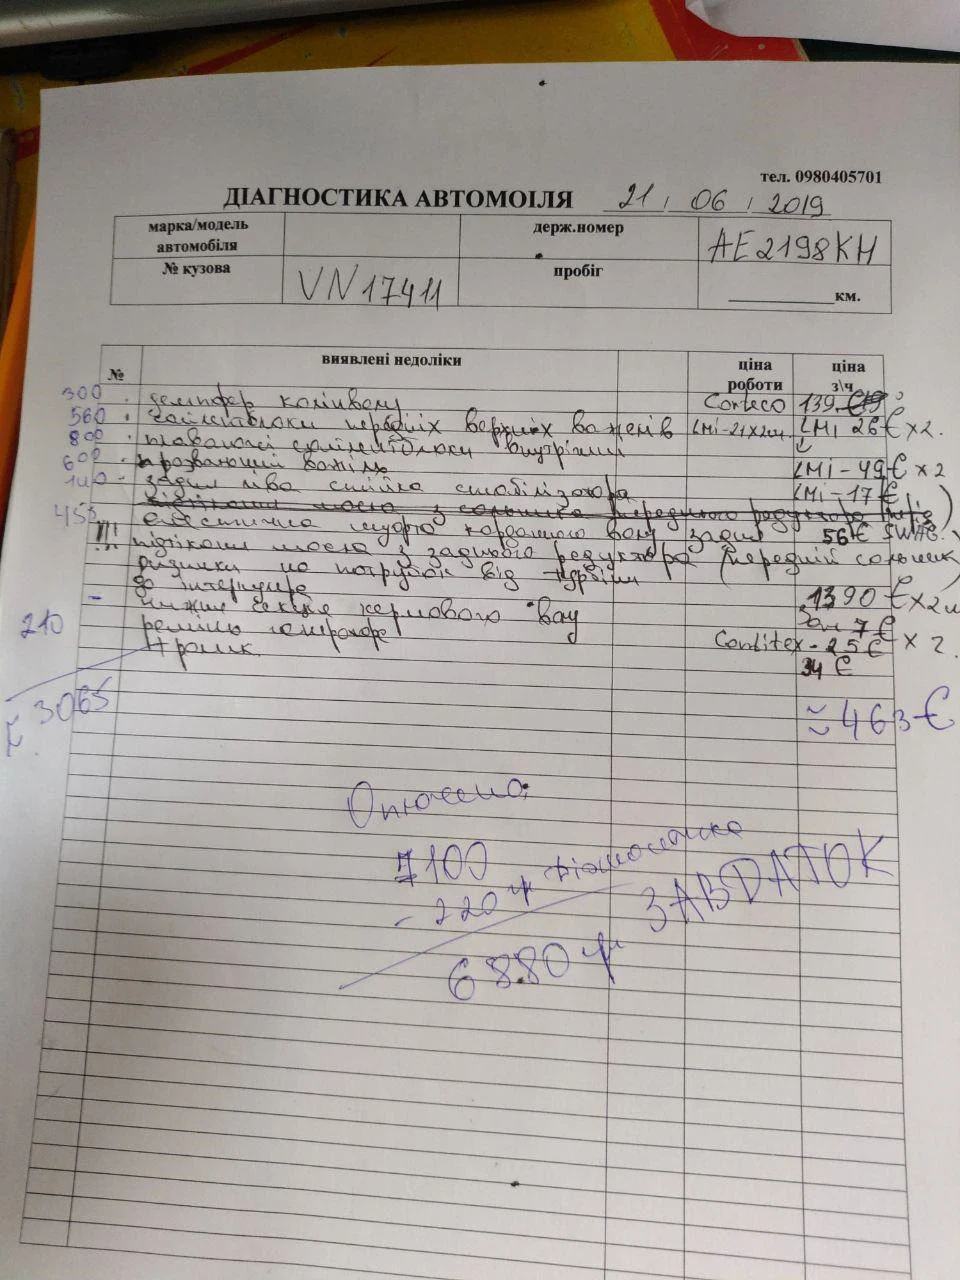 тел. 0980405701
ДІАГНОСТИКА АВТОМОІЛЯ 21 , 06 , 2019
марка/модель автомобіля
держ.номер
AE2198KH
№ кузова
VN17411
пробіг
км.
№
виявлені недоліки
ціна роботи
ціна з/ч
300 демпфер колінвалу Corteco 139 €
560 сайлентблоки передніх верхніх важелів LMI 26 € x 2.
800 плаваючі сайлентблоки внутрішні
600 важіль LMi - 49 € x 2
100 задня ліва стійка стабілізатора LMi - 17 €
455 еластична муфта карданного валу задня 56 € SWAG.
!!! підтікання масла з заднього редуктора (передній сальник)
патрубок від турбіни
до інтеркулера 1390 € x 2
- нижня секція кермового валу 7 €
210 ремінь генератора Contitex - 25 € x 2.
+ ролик 34 €
3065
≈ 463 €
Оплачено:
7100
- 220 гр діагностика
6880 гр ЗАВДАТОК